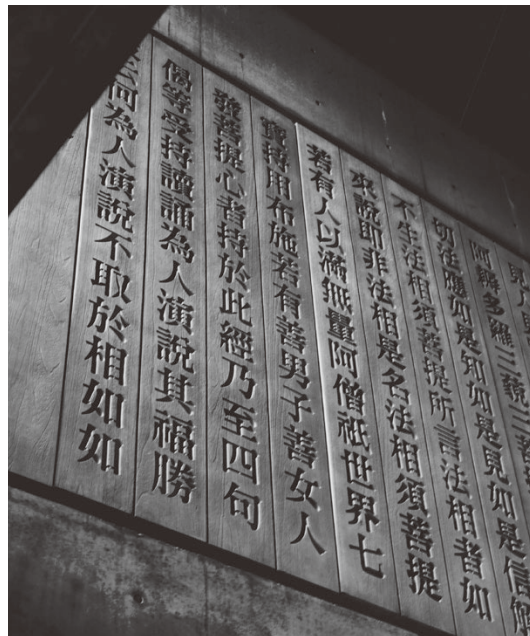 見人
阿耨多羅三藐三菩
切法應如是知如是見如是信解
不生法相須菩提所言法相者如
來說即非法相是名法相須菩提
若有人以滿無量阿僧祇世界七
寶持用布施若有善男子善女人
發菩提心者持於此經乃至四句
偈等受持讀誦為人演說其福勝
云何為人演說不取於相如如